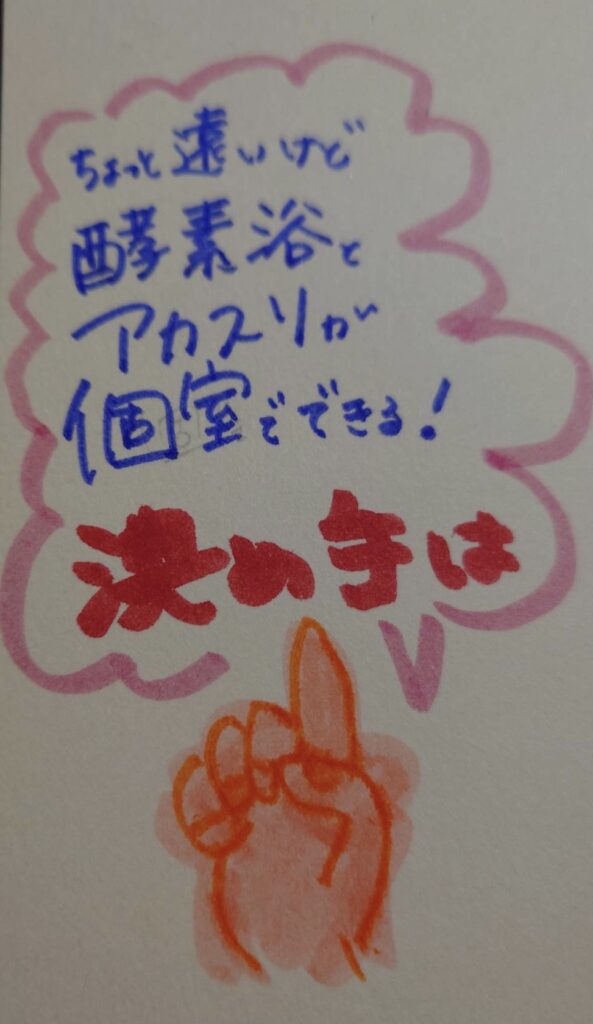 ちょっと遠いけど
酵素浴と
アカスリが
個室でできる!
決め手は